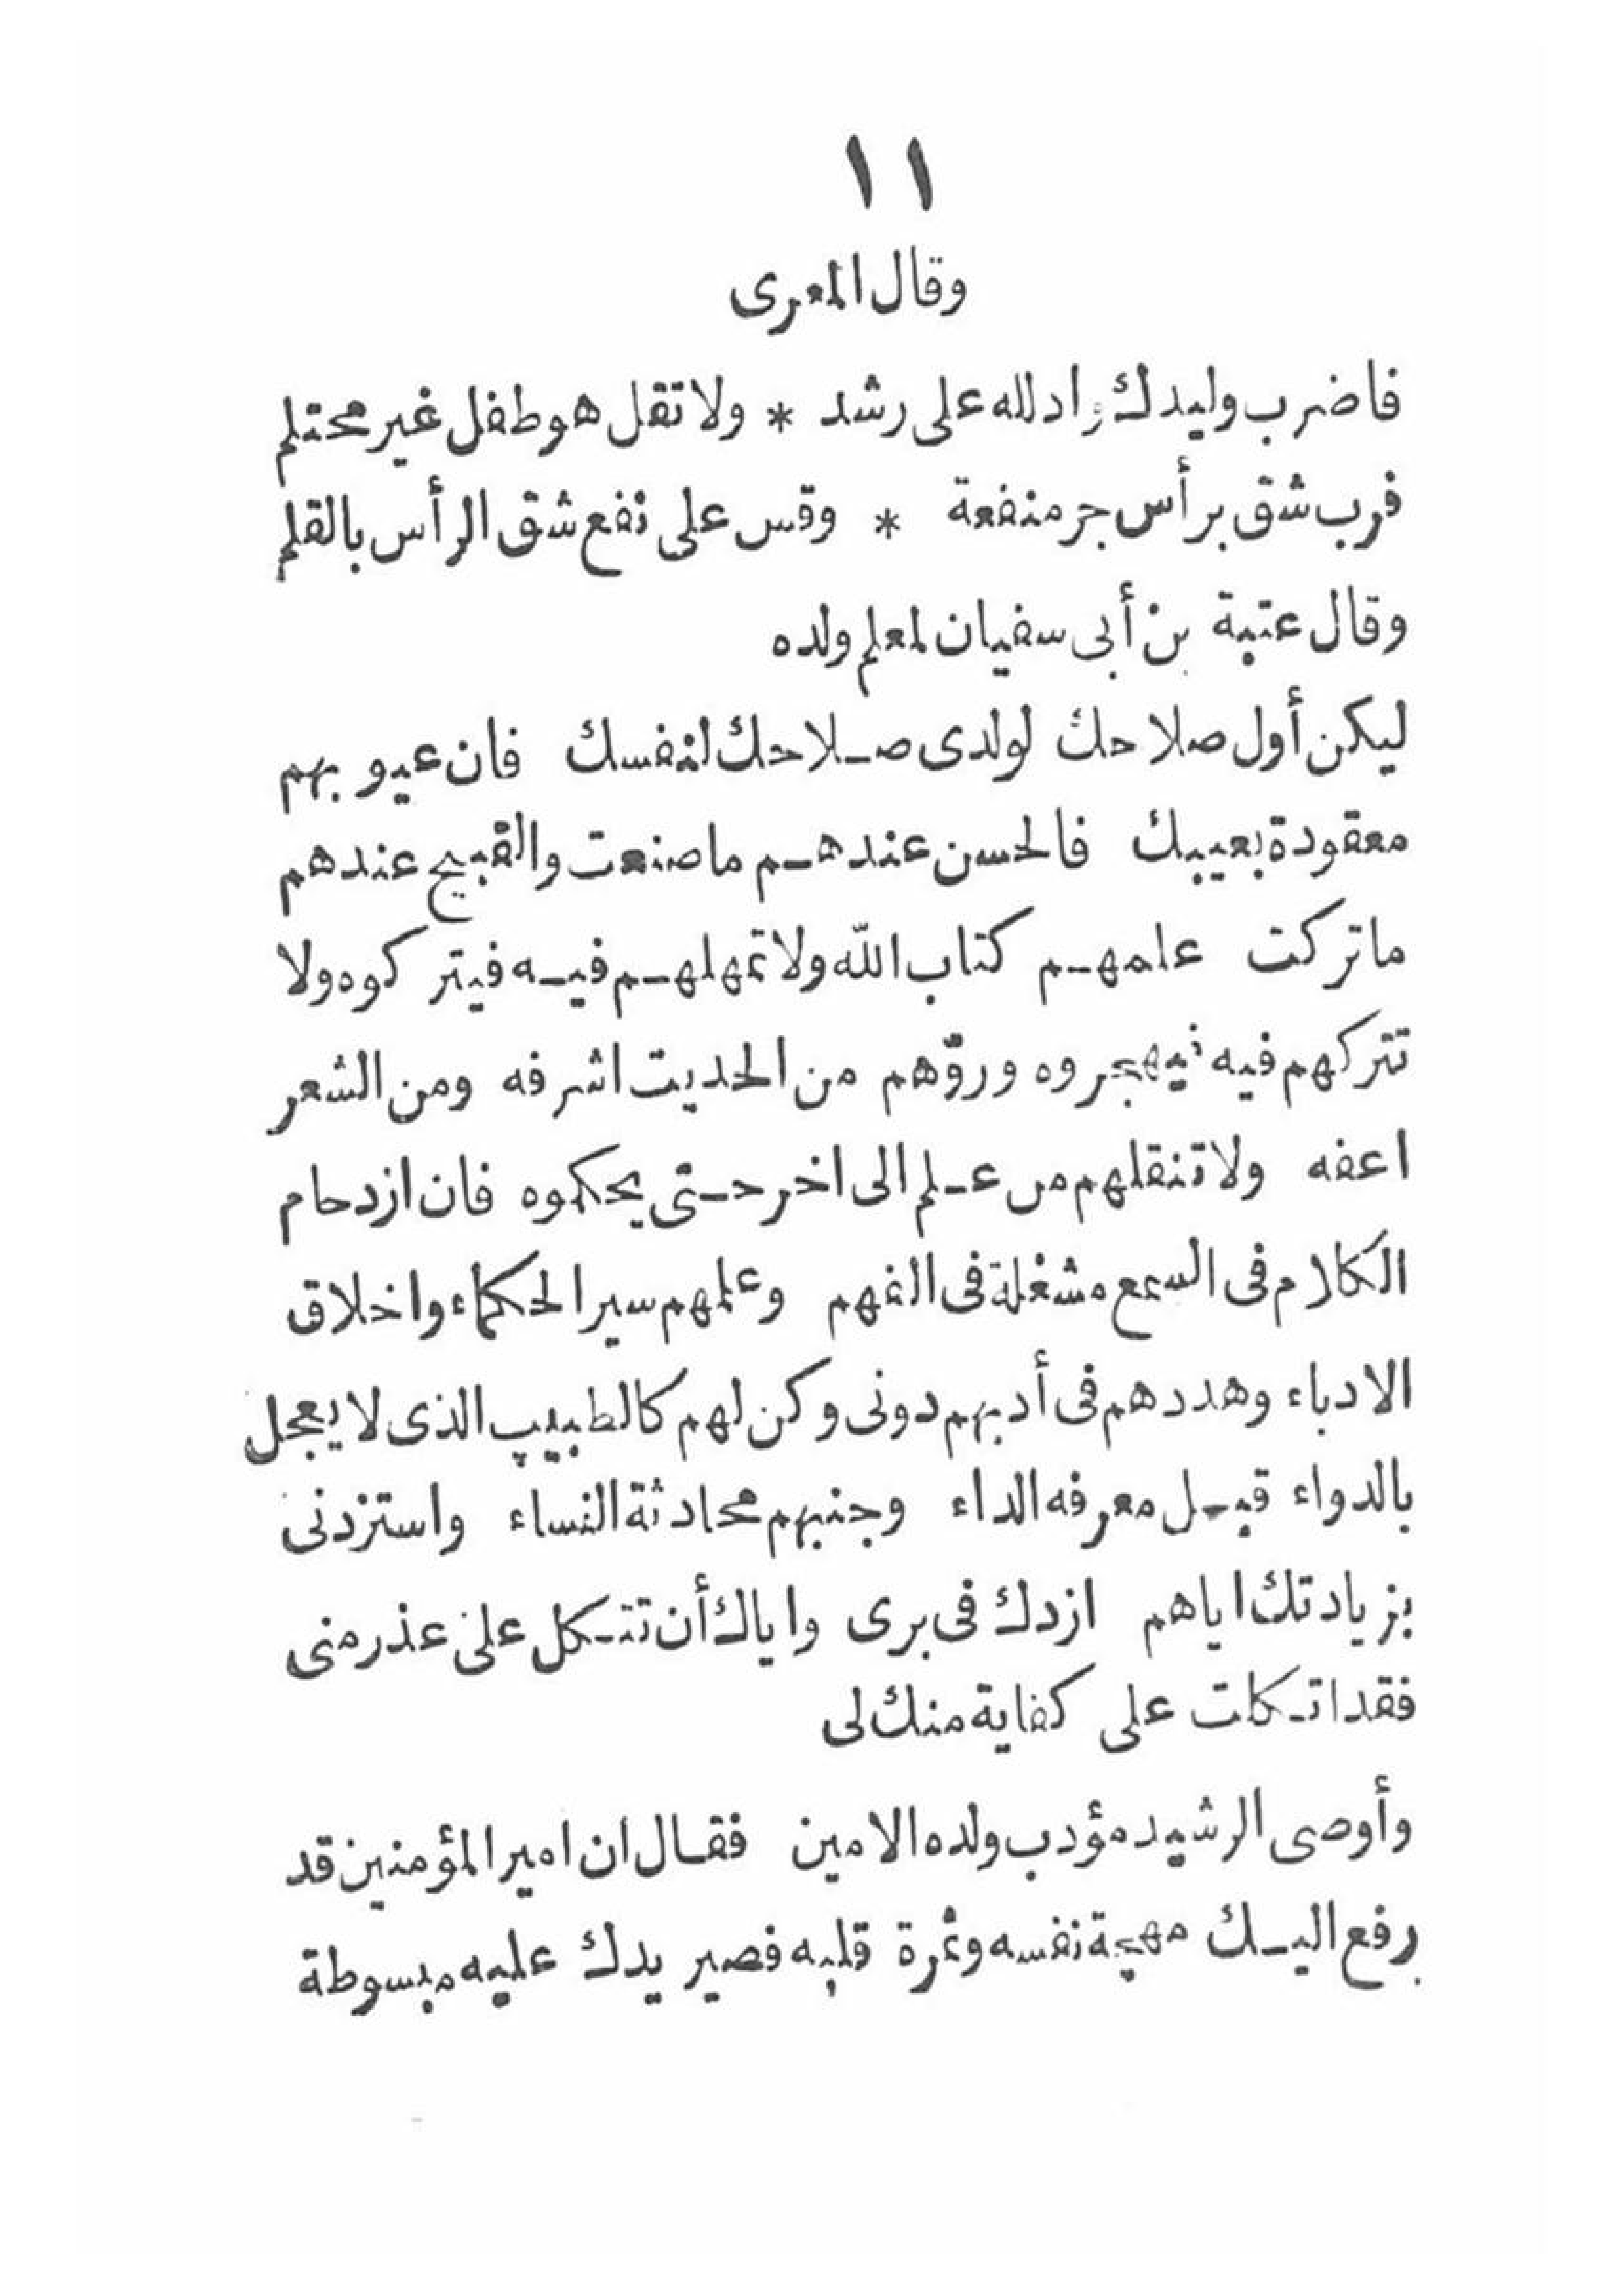 ١١
وقال المعرى
فاضرب وليدك وادلله على رشد * ولا تقل هو طفل غير محتلم
فرب شق برأس جر منفعة * وقس على نفع شق الرأس بالقلم
وقال عتبة بن أبى سفيان لمعلم ولده
ليكن أول صلاحك لولدى صلاحك لنفسك فان عيوبهم
معقودة بعيبك فالحسن عندهم ما صنعت والقبيح عندهم
ما تركت علمهم كتاب الله ولا تمهلهم فيه فيتركوه ولا
تتركهم فيه فيهجروه وروّهم من الحديث اشرفه ومن الشعر
اعفه ولا تنقلهم من علم الى اخر حتى يحكموه فان ازدحام
الكلام فى السمع مشغلة فى الفهم وعلمهم سير الحكماء واخلاق
الادباء وهددهم فى أدبهم دونى وكن لهم كالطبيب الذى لا يعجل
بالدواء قبل معرفه الداء وجنبهم محادثة النساء واستزدنى
بزيادتك اياهم ازدك فى برى واياك أن تتكل على عذر منى
فقد اتكلت على كفاية منك لى
وأوصى الرشيد مؤدب ولده الامين فقال ان امير المؤمنين قد
رفع اليك مهجة نفسه وثمرة قلبه فصير يدك عليه مبسوطة